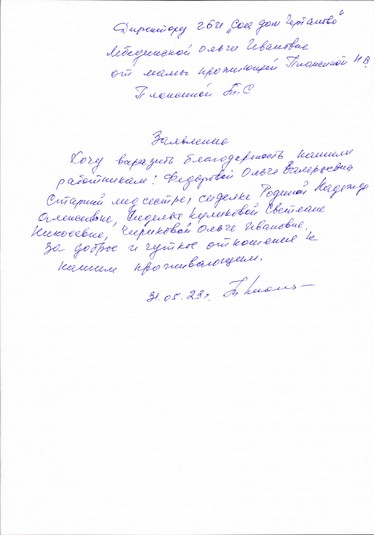 Директору ГБУ "Соц дом Чертаново"
Лебединской Ольге Ивановне
от мамы проживающей Плаксиной Н.В.
Плаксиной Т.С
Заявление
Хочу выразить благодарность нашим
работникам: Федоровой Ольге Валерьевне
Старшей медсестре, сиделке Родиной Надежде
Алексеевне, сиделке Куликовой Светлане
Николаевне, Чириковой Ольге Ивановне.
За доброе и чуткое отношение к
нашим проживающим.
31.05.23г.